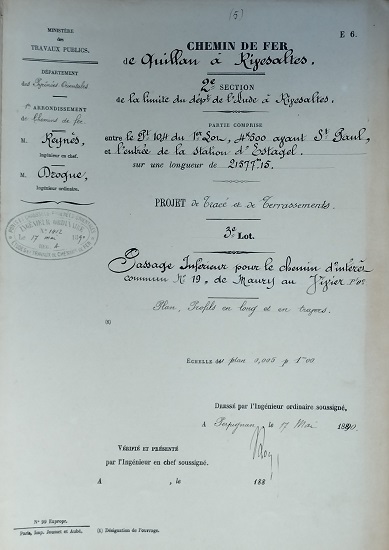 (5)
E 6.
MINISTÈRE
des
TRAVAUX PUBLICS.
DÉPARTEMENT
des Pyrénées Orientales
1er ARRONDISSEMENT
de
Chemins de fer
M. Reynès,
Ingénieur en chef.
M. Drogue,
Ingénieur ordinaire.
CHEMIN DE FER,
de Quillan à Rivesaltes.
2e SECTION
de la limite du dépt de l'Aude à Rivesaltes.
PARTIE COMPRISE
entre le Pt 104 du 1er Lot, 4k500 avant St Paul,
et l'entrée de la station d'Estagel.
sur une longueur de 21577m15.
PROJET de Tracé et de Terrassements.
3e Lot.
Passage Inférieur pour le chemin d'intérêt
commun No 19, de Maury au
Plan, Profils en long et en travers.
(1)
ÉCHELLE du plan 0,005 p 1m00
DRESSÉ par l'Ingénieur ordinaire soussigné,
A Perpignan, le 17 Mai 1890.
VÉRIFIÉ ET PRÉSENTÉ
par l'Ingénieur en chef soussigné.
A , le 188
No 99 Exprope.
Paris, Imp. Jousset et Aubé.
(1) Désignation de l'ouvrage.